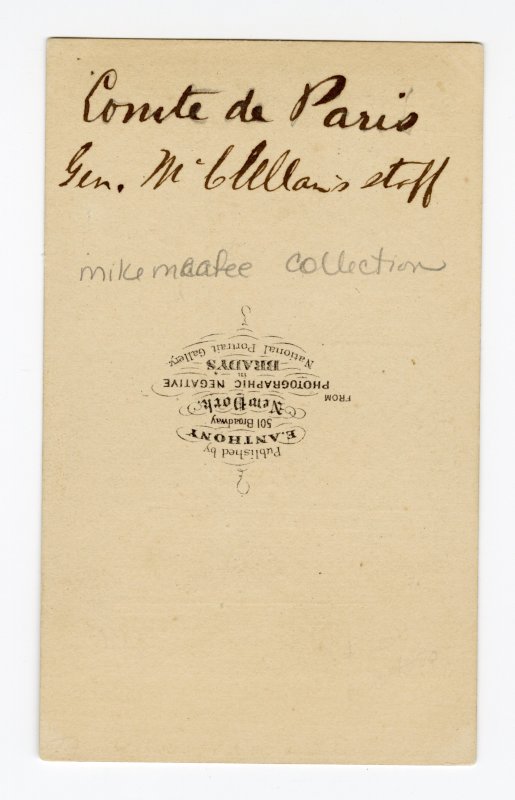 Comte de Paris
Gen. McClellan's staff
mike mcafee collection
Published by
E. ANTHONY
501 Broadway
New York.
FROM
PHOTOGRAPHIC NEGATIVE
IN
BRADY'S
National Portrait Gallery.